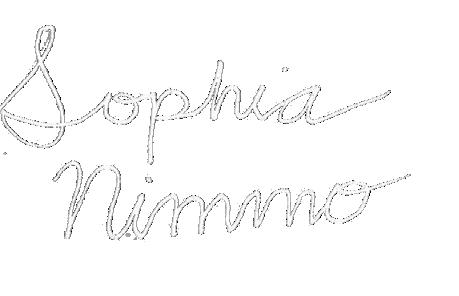 Sophia
Nimmo